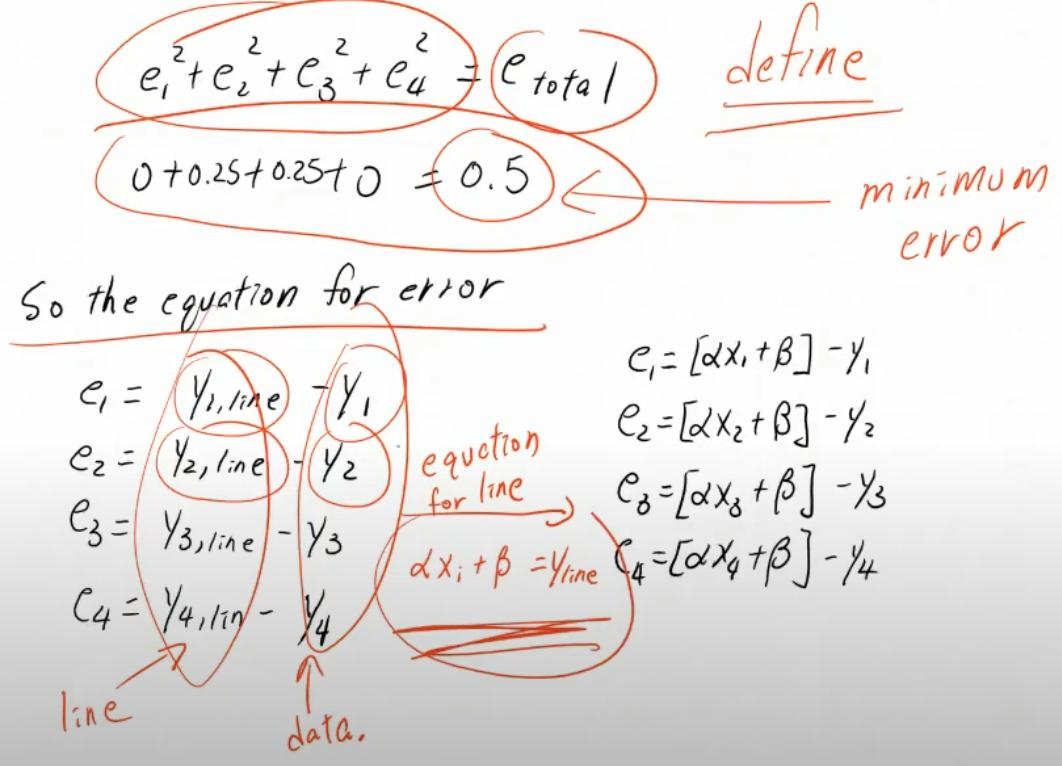 e₁² + e₂² + e₃² + e₄² = e total
define
0 + 0.25 + 0.25 + 0 = 0.5
minimum
error
So the equation for error
e₁ = y₁,line - y₁
e₂ = y₂,line - y₂
e₃ = y₃,line - y₃
e₄ = y₄,lin - y₄
line
data.
equation
for line
αxᵢ + β = yline
e₁ = [αx₁ + β] - y₁
e₂ = [αx₂ + β] - y₂
e₃ = [αx₃ + β] - y₃
e₄ = [αx₄ + β] - y₄